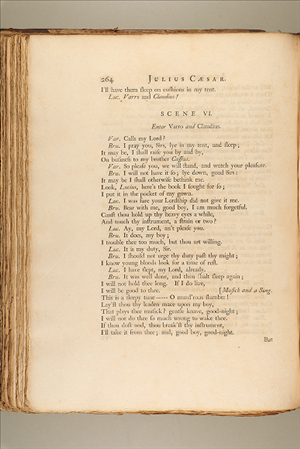 264 JULIUS CÆSAR.
I'll have them sleep on cushions in my tent.
Luc. Varro and Claudius!
SCENE VI.
Enter Varro and Claudius.
Var. Calls my Lord?
Bru. I pray you, Sirs, lye in my tent, and sleep;
It may be, I shall raise you by and by,
On business to my brother Cassius.
Var. So please you, we will stand, and watch your pleasure.
Bru. I will not have it so; lye down, good Sirs:
It may be I shall otherwise bethink me.
Look, Lucius, here's the book I sought for so;
I put it in the pocket of my gown.
Luc. I was sure your Lordship did not give it me.
Bru. Bear with me, good boy, I am much forgetful.
Canst thou hold up thy heavy eyes a while,
And touch thy instrument, a strain or two?
Luc. Ay, my Lord, an't please you.
Bru. It does, my boy;
I trouble thee too much, but thou art willing.
Luc. It is my duty, Sir.
Bru. I should not urge thy duty past thy might;
I know young bloods look for a time of rest.
Luc. I have slept, my Lord, already.
Bru. It was well done, and thou shalt sleep again;
I will not hold thee long. If I do live,
I will be good to thee. [Musick and a Song.
This is a sleepy tune —— O murd'rous slumber!
Lay'st thou thy leaden mace upon my boy,
That plays thee musick? gentle knave, good-night;
I will not do thee so much wrong to wake thee.
If thou dost nod, thou break'st thy instrument,
I'll take it from thee; and, good boy, good-night.